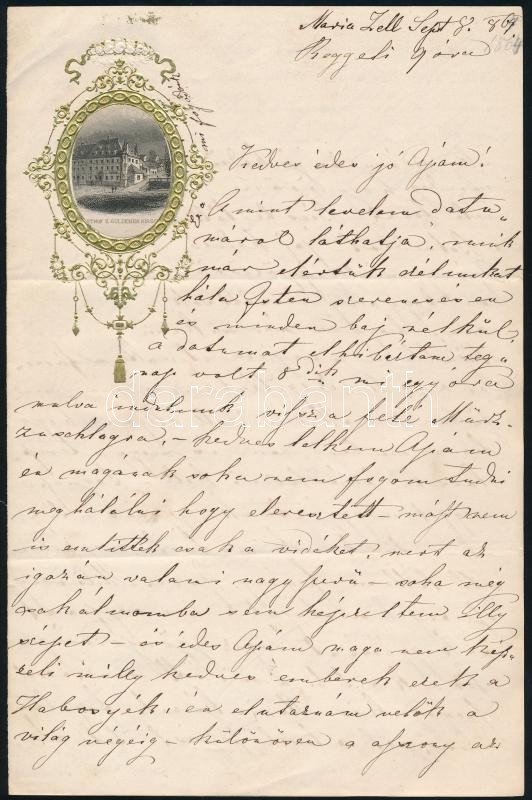 Maria Zell Sept 8. 869.
Reggeli 9 óra
Kedves édes jó Apám!
A mint levelem datu-
mára láthatja, mink
már elértük célunkat
hála Isten szerencsésen
és minden baj nélkül
a datumat elhibáztam teg-
nap volt 8dik mi egy óra
mulva indulunk vissza felé Mürz-
zuschlagra, – kedves lelkem Apám
én magának soha nem fogom tudni
meghálálni hogy eleresztett – mást nem
is említtek csak a vidéket, mert az
igazán valami nagyszerű – soha még
sak álmomba sem képzeltem illy
szépet – és édes Apám maga nem kép-
zeli milly kedves emberek ezek a
Habosyék: én elutaznám velök a
világ végéig – különösen a asszony az
darabanth